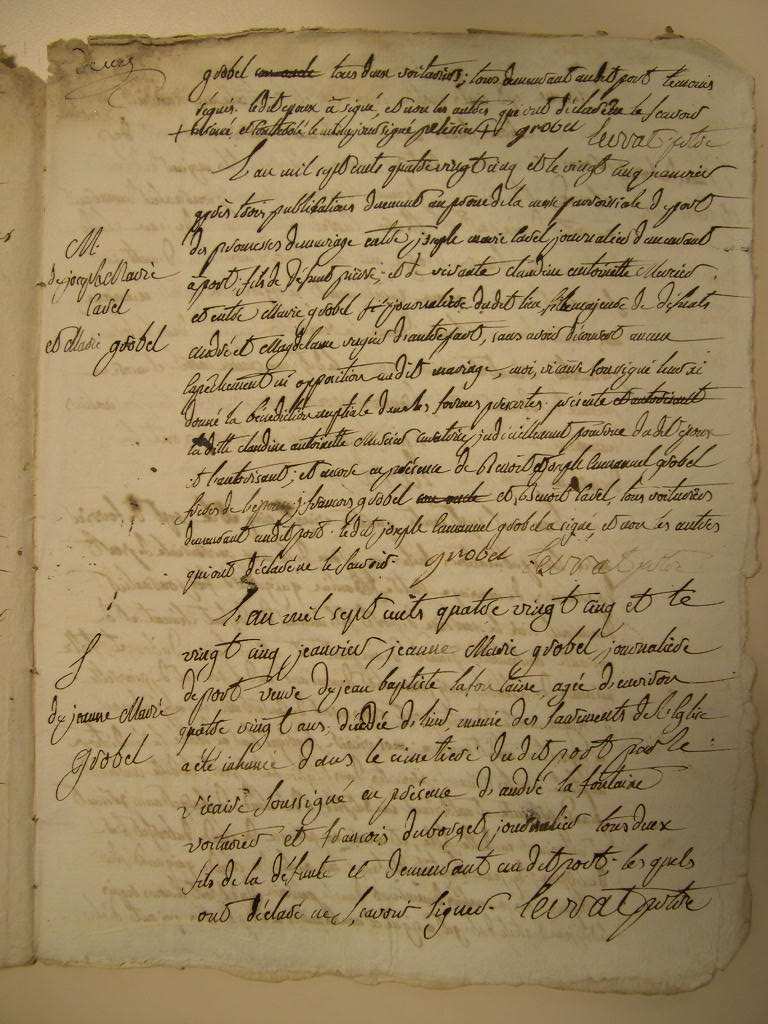 deux
grobel tous deux voituriers; tous demeurant audit port temoins
requis. ledit epoux à signé, et non les autres qui ont déclaré ne le scavoir
grobel levrat ptre
L'an mil sept cents quatre vingt cinq et le vingt cinq janvier
après trois publications au prone de la messe parroissiale de port
des promesses de mariage entre joseph marie cavel journalier demeurant
à port, fils de défunt pierre; et de vivante claudine antoinette Mercier,
et entre Marie grobel journaliere dudit lieu, fille majeure de défunts
andré et Magdelaine d'autre part, sans avoir découvert aucun
empêchement ni opposition audit mariage, moi, vicaire soussigné leur ai
donné la bénédiction nuptiale dans les formes prescrites. présente et autorisant
laditte claudine antoinette Mercier curatrice judiciellement pourvue dudit epoux
et l'autorisant; et encore en présence de Benoit et joseph Emmanuel grobel
freres de francois grobel son oncle et, Benoit Cavel, tous voituriers
demeurant audit port. ledit joseph Emmanuel grobel a signé, et non les autres
qui ont déclaré ne le scavoir. grobel levrat ptre
M.
de joseph Marie
Cavel
et Marie grobel
L'an mil sept cents quatre vingt cinq et le
vingt cinq jeanvier jeanne Marie grobel, journaliere
de port veuve de jean baptiste lafontaine, agée d'environ
quatre vingt ans, décédée d'hier, munie des sacrements de l'Eglise
a eté inhumée dans le cimetiere dudit port par le
vicaire soussigné en présence d'andré la fontaine
voiturier et francois duborget, journalier tous deux
fils de la défunte et demeurant audit port; lesquels
ont déclaré ne scavoir signer. levrat ptre
S
de jeanne Marie
grobel